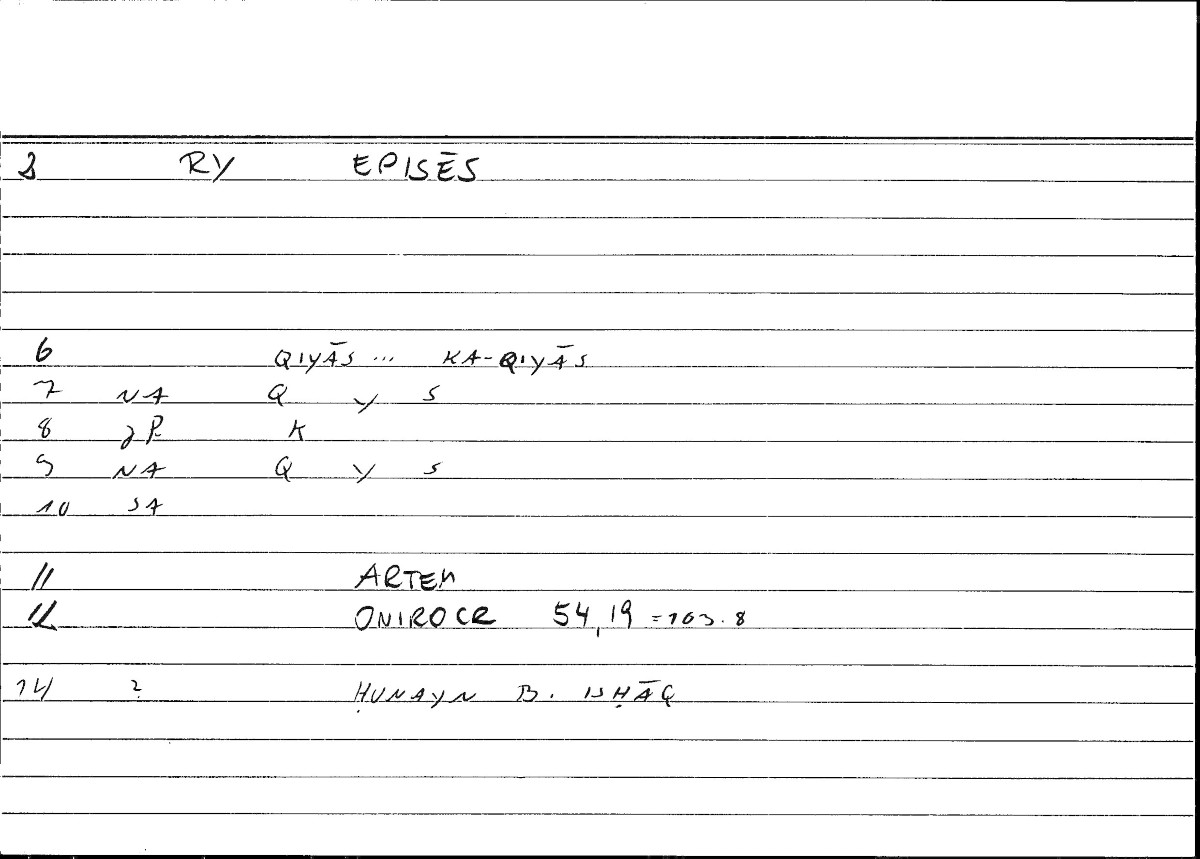 3 RY EPISĒS
6 QIYĀS ... KA-QIYĀS
7 NA Q Y S
8 JP K
9 NA Q Y S
10 SA
11 ARTEM
12 ONIROCR 54,19 = 103.8
14 2 ḤUNAYN B. ISḤĀQ